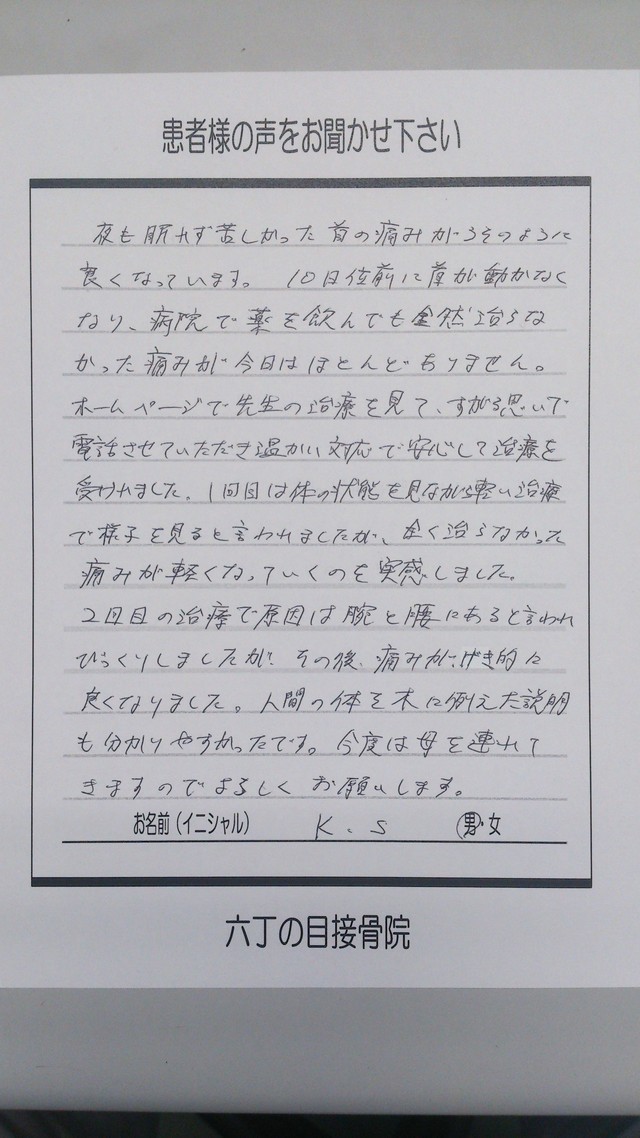 患者様の声をお聞かせ下さい
夜も眠れず苦しかった首の痛みがうそのように
良くなっています。10日位前に首が動かなく
なり、病院で薬を飲んでも全然治らな
かった痛みが今日はほとんどありません。
ホームページで先生の治療を見て、すがる思いで
電話させていただき温かい対応で安心して治療を
受けれました。1回目は体の状態を見ながら軽い治療
で様子を見ると言われましたが、全く治らなかった
痛みが軽くなっていくのを実感しました。
2回目の治療で原因は腕と腰にあると言われ
びっくりしましたが、その後、痛みがげき的に
良くなりました。人間の体を木に例えた説明
も分かりやすかったです。今度は母を連れて
きますのでよろしくお願いします。
お名前(イニシャル) K.S 男・女
六丁の目接骨院